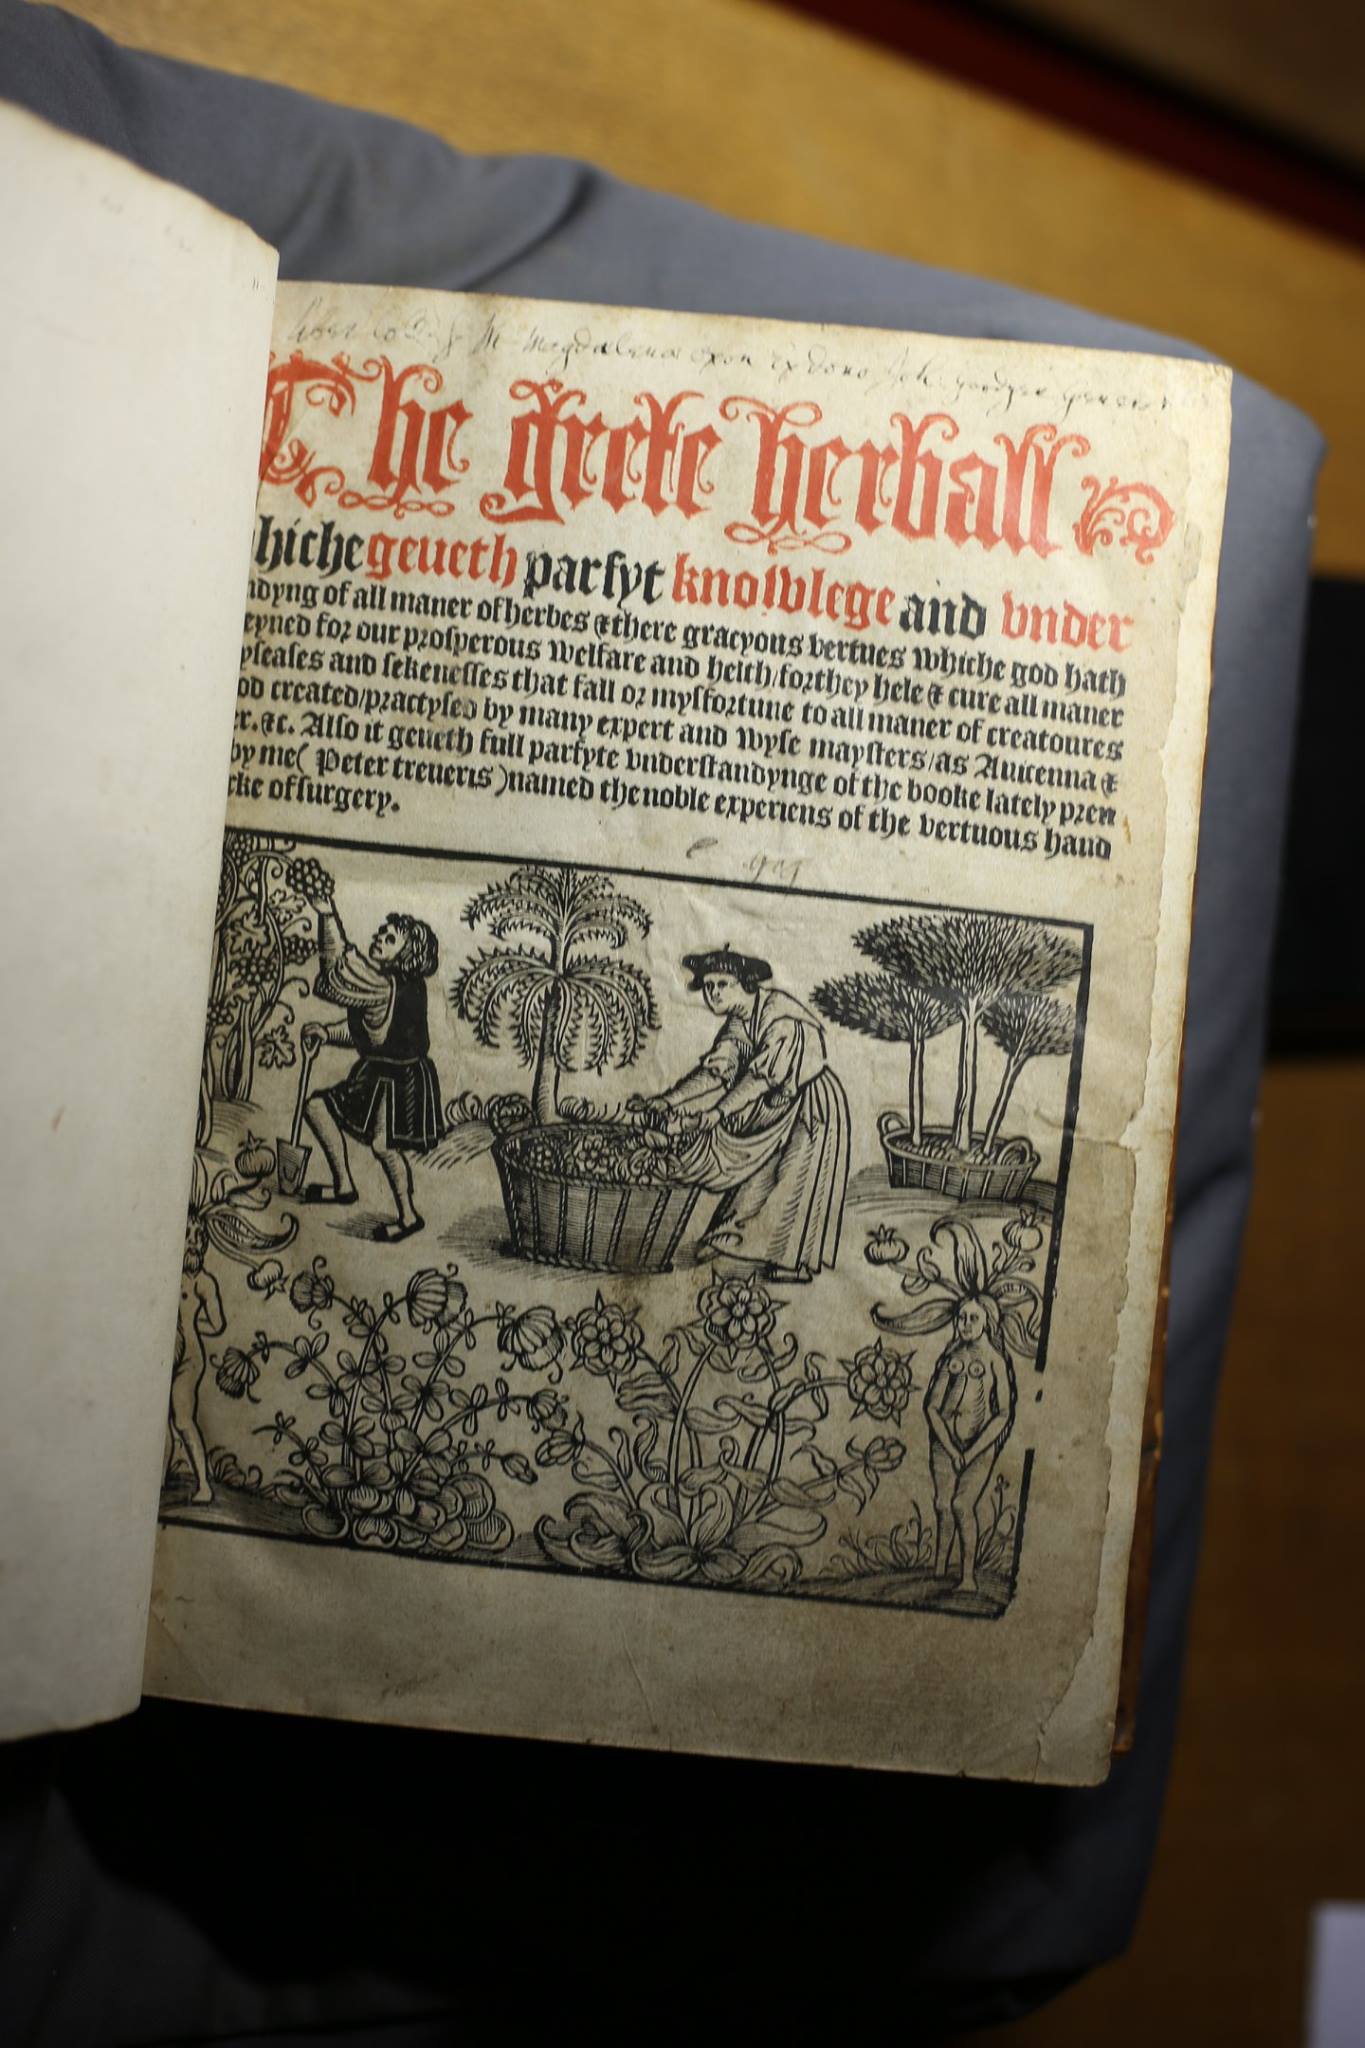 Magdalenæ oxon ex dono
The grete herball
hiche geueth parfyt knowlege and vnder
ndyng of all maner of herbes & there gracyous vertues whiche god hath
eyned for our prosperous welfare and helth/for they hele & cure all maner
yseases and sekenesses that fall or mysfortune to all maner of creatoures
od created/practysed by many expert and wyse maysters/as Auicenna &
er. &c. Also it geueth full parfyte vnderstandynge of the booke lately pren
by me ( Peter treueris ) named the noble experiens of the vertuous hand
cke of surgery.